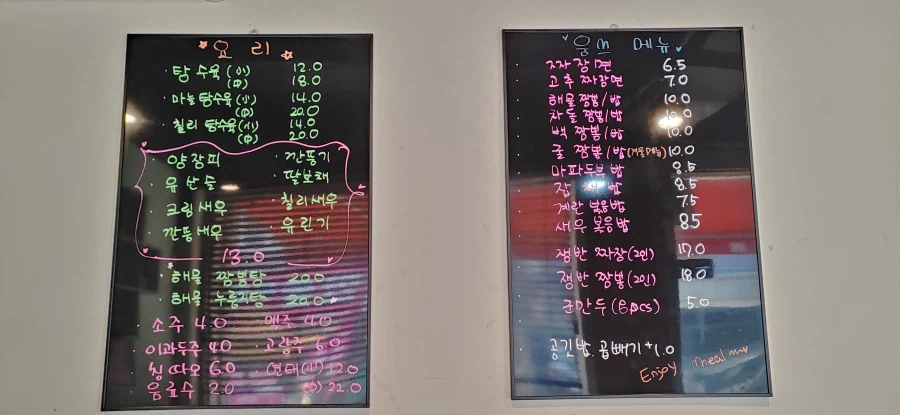 요리
탕수육(小) 12.0
(中) 18.0
마늘탕수육(小) 14.0
(中) 20.0
칠리 탕수육(小) 14.0
(中) 20.0
양장피 깐풍기
유산슬 딸보채
크림새우 칠리새우
깐풍새우 유린기
13.0
해물 짬뽕탕 20.0
해물 누룽지탕 20.0
소주 4.0 맥주 4.0
이과두주 4.0 고량주 6.0
칭따오 6.0 연태(小) 12.0
음료수 2.0 (中) 22.0
메뉴
짜장면 6.5
고추 짜장면 7.0
해물 짬뽕/밥 10.0
차돌 짬뽕/밥 10.0
백 짬뽕/밥 10.0
굴 짬뽕/밥(겨울메뉴) 10.0
마파두부 밥 8.5
잡채밥 8.5
계란 볶음밥 7.5
새우 볶음밥 8.5
쟁반 짜장(2인) 17.0
쟁반 짬뽕(2인) 18.0
군만두(6pcs) 5.0
공기밥, 곱빼기 +1.0
Enjoy meal